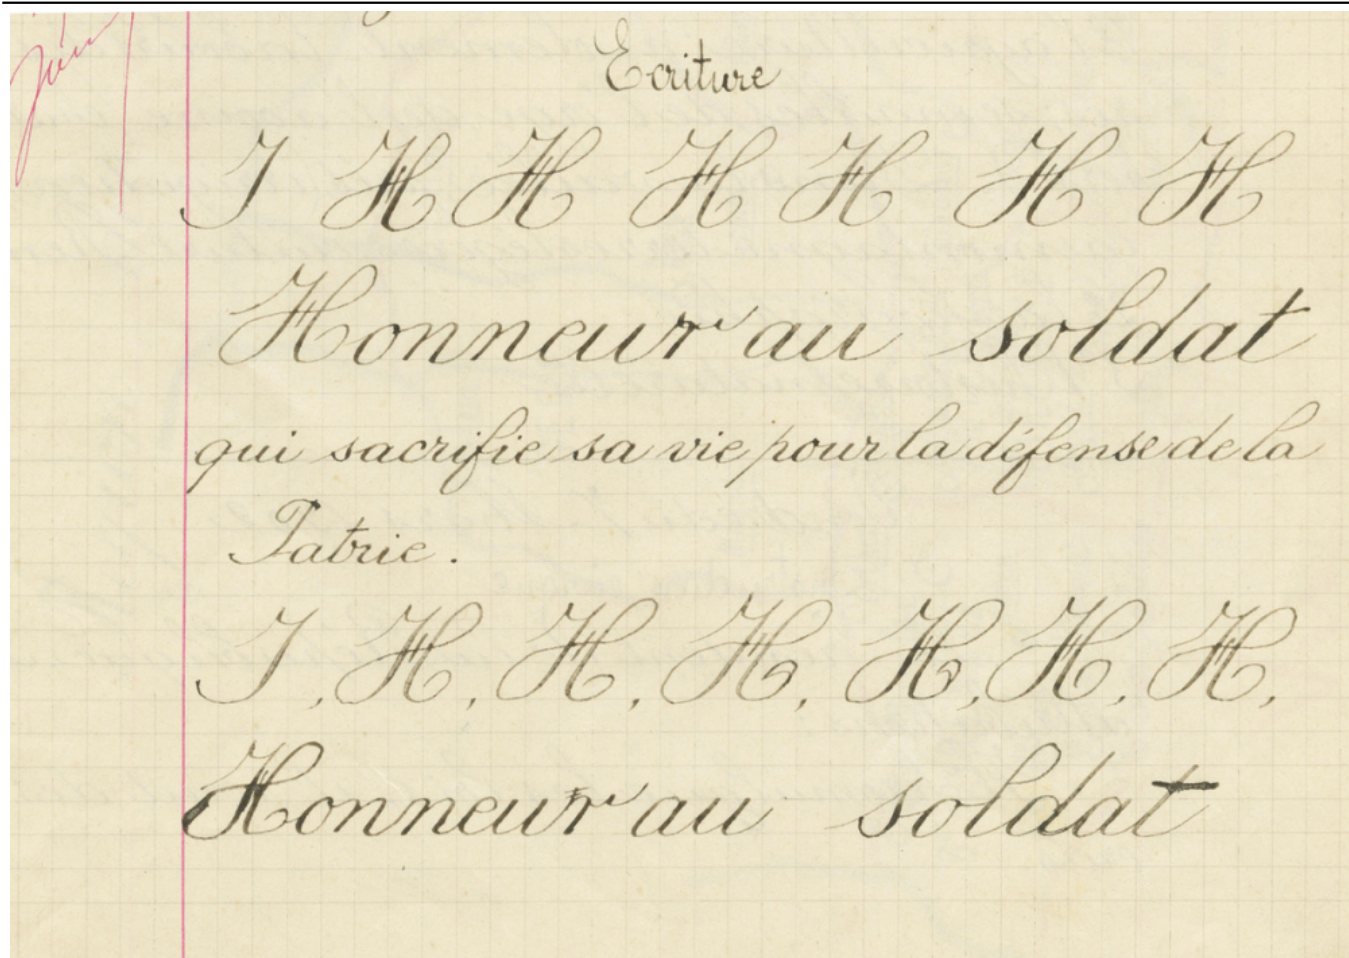 Ecriture
I H H H H H H
Honneur au soldat
qui sacrifie sa vie pour la défense de la
Patrie.
I, H, H, H, H, H, H,
Honneur au soldat